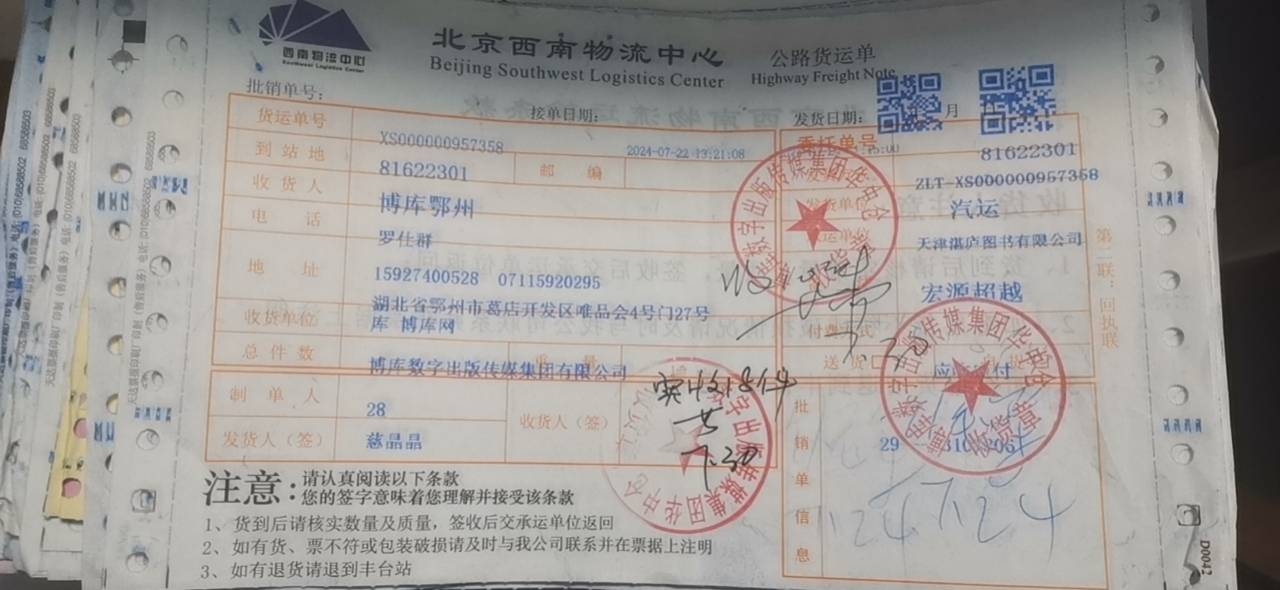 西南物流中心
Southwest Logistics Center
北京西南物流中心
Beijing Southwest Logistics Center
公路货运单
Highway Freight Note
批销单号：
接单日期：
发货日期： 月
货运单号
XS000000957358
2024-07-22 13:21:08
委托单号
81622301
到站地
81622301
邮编
ZLT-XS000000957358
收货人
博库鄂州
发货单位
汽运
电话
罗仕群
天津湛庐图书有限公司
地址
15927400528 07115920295
宏源超越
湖北省鄂州市葛店开发区唯品会4号门27号
库 博库网
收货单位
付费方式
总件数
博库数字出版传媒集团有限公司
重量
送货
制单人
28
收货人（签）
实收18件
7.30
发货人（签）
慈晶晶
批销单信息
29
第二联：回执联
数字出版传媒集团华中仓
收货章
注意：
请认真阅读以下条款
您的签字意味着您理解并接受该条款
1、货到后请核实数量及质量，签收后交承运单位返回
2、如有货、票不符或包装破损请及时与我公司联系并在票据上注明
3、如有退货请退到丰台站
D0042